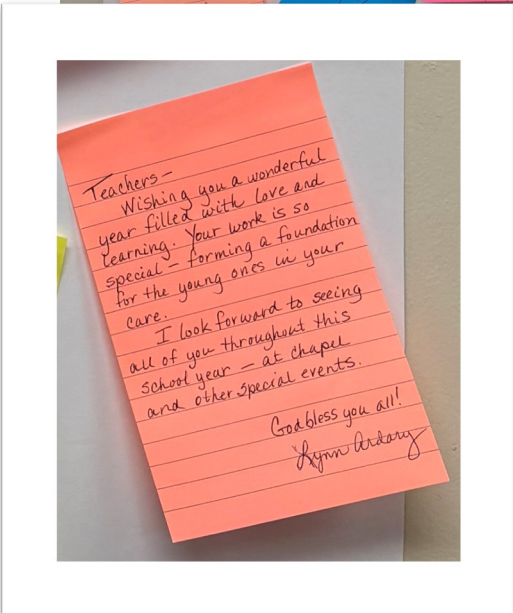 Teachers-
Wishing you a wonderful
year filled with love and
learning. Your work is so
special - forming a foundation
for the young ones in your
care.
I look forward to seeing
all of you throughout this
school year - at chapel
and other special events.
God bless you all!
Lynn Ardary